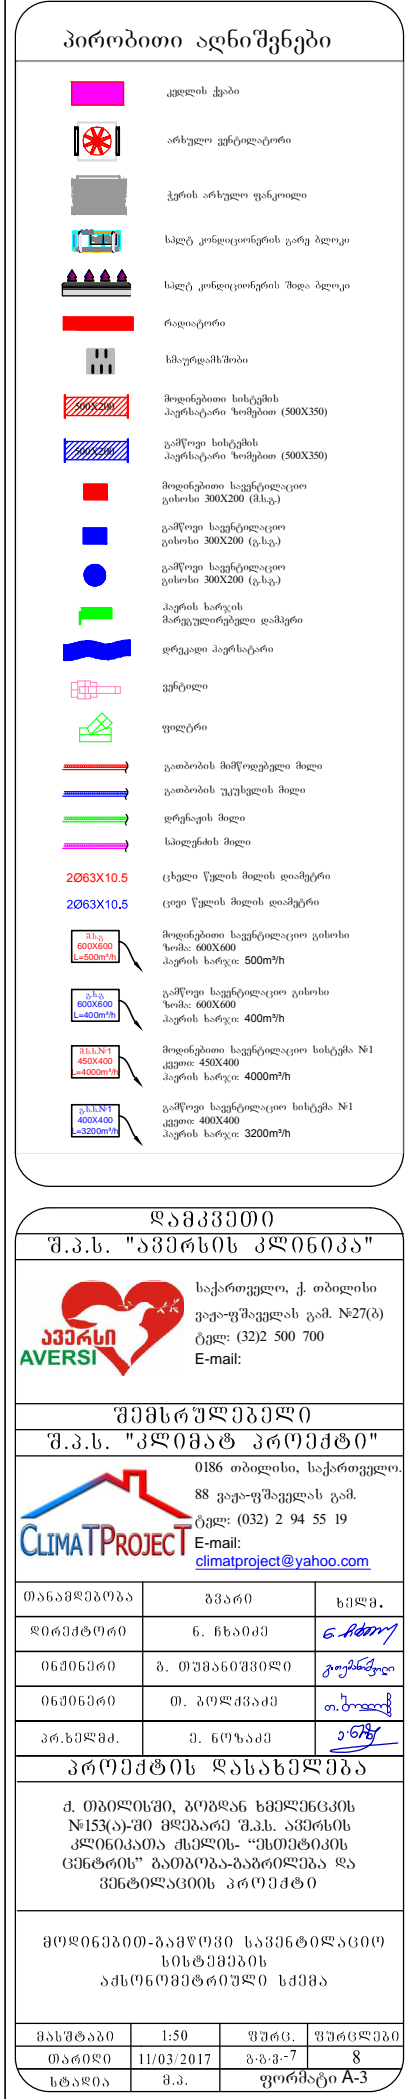 პირობითი აღნიშვნები
კედლის ქვაბი
არხული ვენტილატორი
ჭერის არხული ფანკოილი
სპლტ კონდიციონერის გარე ბლოკი
სპლტ კონდიციონერის შიდა ბლოკი
რადიატორი
ხმაურდამხშობი
500X200
მოდინებითი სისტემის
ჰაერსატარი ზომებით (500X350)
500X200
გამწოვი სისტემის
ჰაერსატარი ზომებით (500X350)
მოდინებითი სავენტილაციო
გისოსი 300X200 (მ.ს.გ.)
გამწოვი სავენტილაციო
გისოსი 300X200 (გ.ს.გ.)
გამწოვი სავენტილაციო
გისოსი 300X200 (გ.ს.გ.)
ჰაერის ხარჯის
მარეგულირებელი დამპერი
დრეკადი ჰაერსატარი
ვენტილი
ფილტრი
გათბობის მიმწოდებელი მილი
გათბობის უკუსვლის მილი
დრენაჟის მილი
სპილენძის მილი
2Ø63X10.5 ცხელი წყლის მილის დიამეტრი
2Ø63X10.5 ცივი წყლის მილის დიამეტრი
მ.ს.გ
600X600
L=500m³/h
მოდინებითი სავენტილაციო გისოსი
ზომა: 600X600
ჰაერის ხარჯი: 500m³/h
გ.ს.გ
600X600
L=400m³/h
გამწოვი სავენტილაციო გისოსი
ზომა: 600X600
ჰაერის ხარჯი: 400m³/h
მ.ს.ს.№1
450X400
L=4000m³/h
მოდინებითი სავენტილაციო სისტემა №1
კვეთი: 450X400
ჰაერის ხარჯი: 4000m³/h
გ.ს.ს.№1
400X400
L=3200m³/h
გამწოვი სავენტილაციო სისტემა №1
კვეთი: 400X400
ჰაერის ხარჯი: 3200m³/h
დამკვეთი
შ.პ.ს. "ავერსის კლინიკა"
ავერსი
AVERSI
საქართველო, ქ. თბილისი
ვაჟა-ფშაველას გამ. №27(ბ)
ტელ: (32)2 500 700
E-mail:
შემსრულებელი
შ.პ.ს. "კლიმატ პროექტი"
CLIMATPROJECT
0186 თბილისი, საქართველო.
88 ვაჟა-ფშაველას გამ.
ტელ: (032) 2 94 55 19
E-mail:
climatproject@yahoo.com
თანამდებობა გვარი ხელმ.
დირექტორი ნ. ჩხაიძე
ინჟინერი გ. თუმანიშვილი
ინჟინერი თ. ბოლქვაძე
პრ.ხელმძ. ე. ნოზაძე
პროექტის დასახელება
ქ. თბილისში, ბოგდან ხმელენცკის
№153(ა)-ში მდებარე შ.პ.ს. ავერსის
კლინიკათა ქსელის- “ესთეტიკის
ცენტრის” გათბობა-გაგრილება და
ვენტილაციის პროექტი
მოდინებით-გამწოვი სავენტილაციო
სისტემების
აქსონომეტრიული სქემა
მასშტაბი 1:50 ფურც. ფურცლები
თარიღი 11/03/2017 გ.გ.ვ.-7 8
სტადია მ.პ. ფორმატი A-3